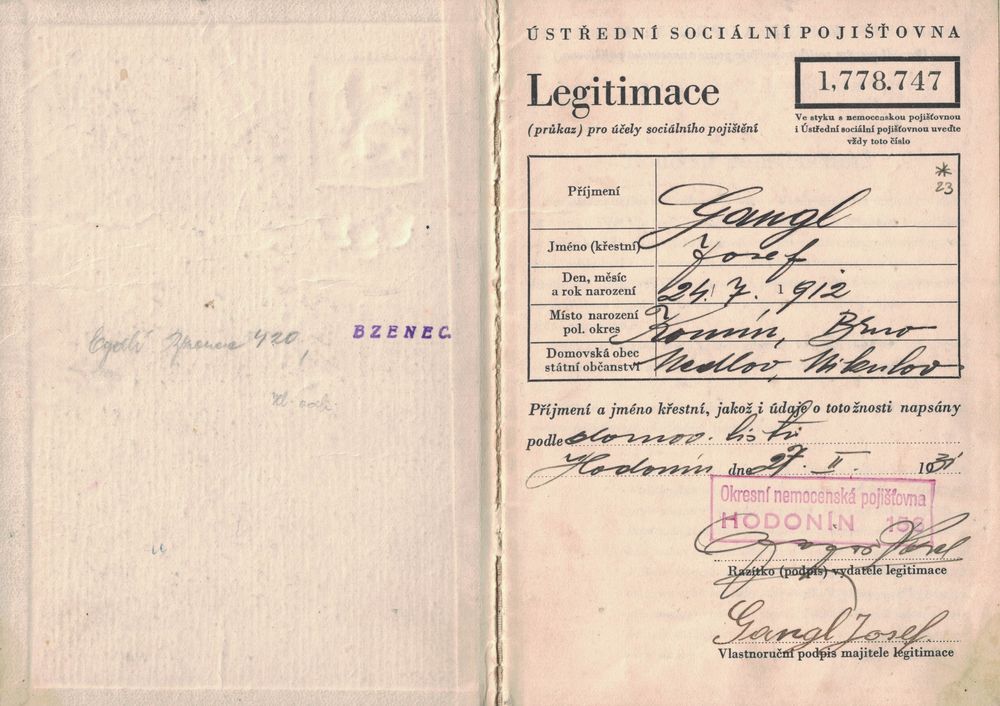 BZENEC.
420,
ÚSTŘEDNÍ SOCIÁLNÍ POJIŠŤOVNA
Legitimace
(průkaz) pro účely sociálního pojištění
1,778.747
Ve styku s nemocenskou pojišťovnou
i Ústřední sociální pojišťovnou uveďte
vždy toto číslo
*
23
Příjmení Gangl
Jméno (křestní) Josef
Den, měsíc
a rok narození 24. 7. 1912
Místo narození
pol. okres Komín, Brno
Domovská obec
státní občanství Nedlov, Mikulov
Příjmení a jméno křestní, jakož i údaje o totožnosti napsány
podle domov. listu
Hodonín dne 27. II. 1931
Okresní nemocenská pojišťovna
HODONÍN 156
Razítko (podpis) vydatele legitimace
Gangl Josef.
Vlastnoruční podpis majitele legitimace